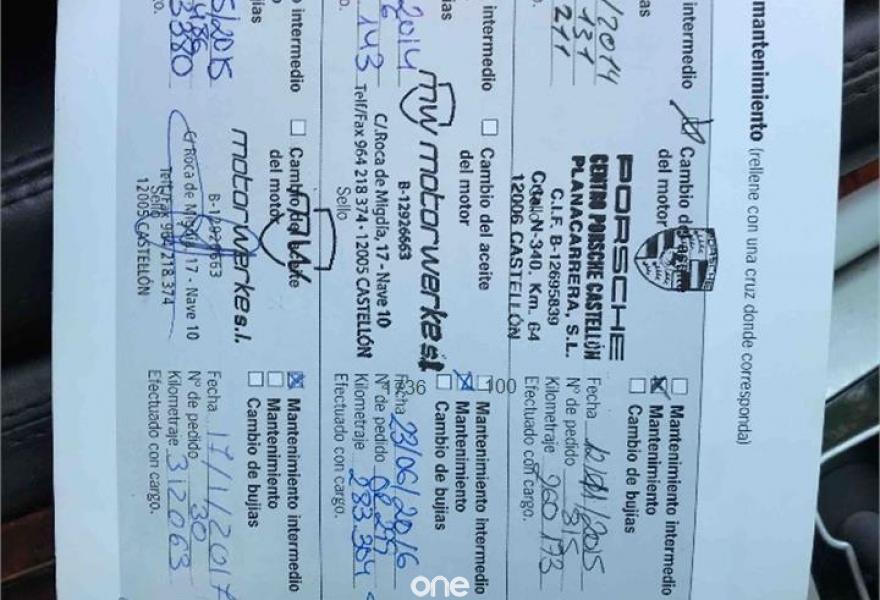 mantenimiento (rellene con una cruz donde corresponda)
intermedio
Cambio del aceite
del motor
/2014
131
211
PORSCHE
CENTRO PORSCHE CASTELLÓN
PLANACARRERA, S.L.
C.I.F. B-12695839
N-340, Km. 64
12006 CASTELLÓN
Mantenimiento intermedio
Mantenimiento
Cambio de bujias
Fecha 2015
Nº de pedido 315
Kilometraje 260.193
Efectuado con cargo.
intermedio
Cambio del aceite
del motor
2014
143
mw motorwerke s.l.
B-12926663
C/.Roca de Migdia, 17 - Nave 10
Telf/Fax 964 218 374 · 12005 CASTELLÓN
Sello
Mantenimiento intermedio
Mantenimiento
Cambio de bujias
Fecha 23/06/2016
Nº de pedido
Kilometraje 283.304
Efectuado con cargo.
36 100
intermedio
Cambio del aceite
del motor
/2015
380
motorwerke s.l.
B-12926663
C/ Roca de Migdia, 17 - Nave 10
Telf/Fax 964 218 374
Sello
12005 CASTELLÓN
Mantenimiento intermedio
Mantenimiento
Cambio de bujias
Fecha 17/1/2017
Nº de pedido 30
Kilometraje 312.063
Efectuado con cargo.
one